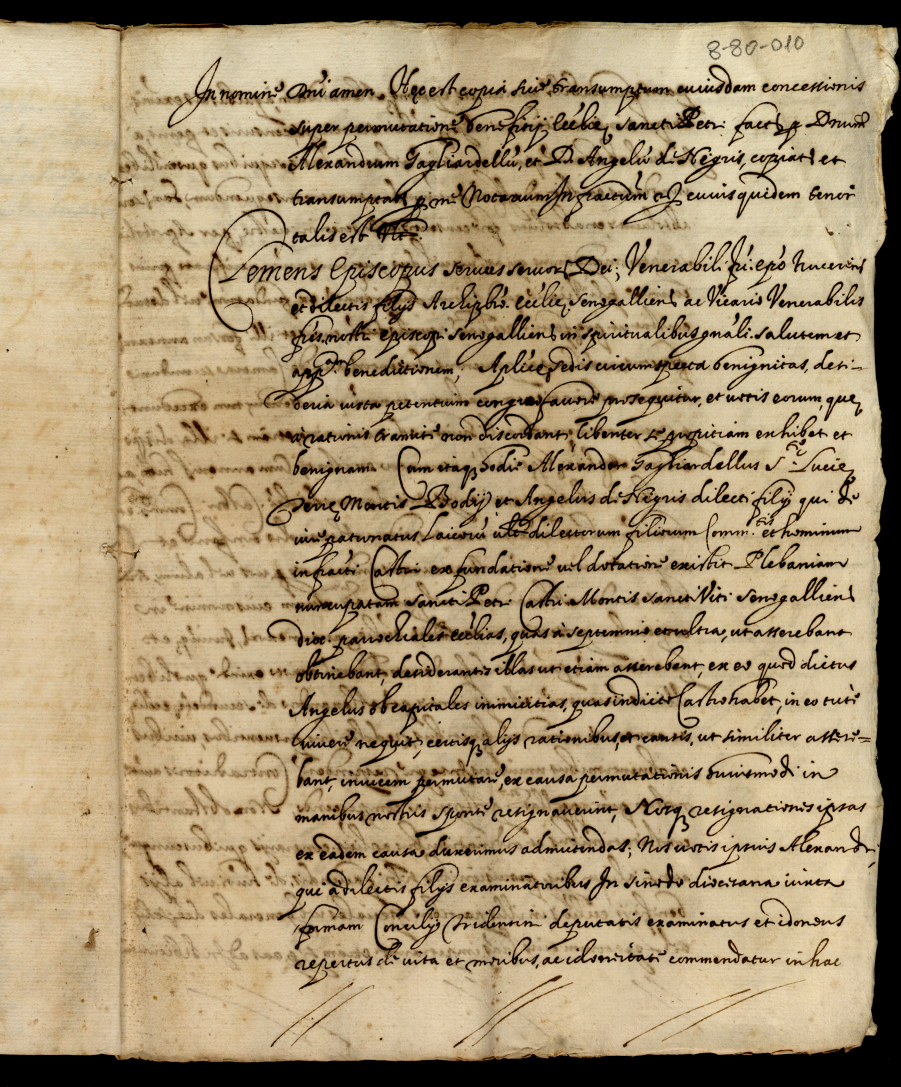 8-80-010
In nomine Dni amen. Hęc est copia sive transumptum cuiusdam concessionis
super permutatione beneficij Ecclię sancti Petri fact p Dnum
Alexandrum Gagliardellū, et D. Angelū de Nigris, copiat et
transumptat p me Notarium Infractum cuius quidem tenor
talis est Vt
Clemens Episcopus servus servor Dei; Venerabili fri epo Nucerin
et dilectis filijs Archipbro Ecclię Senogallien ac Vicario Venerabilis
fris nostri episcopi Senogallien in spiritualibus gnāli salutem et
app.am benedictionem; Aplicę sedis circumspecta benignitas, desi-
deria iusta petentium congruo favore prosequitur, et votis eorum, quę
à rationis tramite non discordant, libenter se propitiam exhibet et
benignam. Cum itaq hodie Alexander Gagliardellus S.tę Lucię
Serrę Montis Bodij et Angelus de Nigris dilecti filij qui de
iure patronatus Laicorū dilectorum filiorum Comm.tis et hominum
infracti Castri ex fundatione vel dotatione existit Plebaniam
nuncupatam sancti Petri Castri Montis sancti Viti Senogallien
dioc. parrochiales ecclias, quas à septennio et ultra, ut asserebant
obtinebant, desiderantes illas ut etiam asserebant, ex eo quod dictus
Angelus ob capitales inimicitias, quas in dicto Castro habet, in eo tutè
vivere nequit, certisq alijs rationibus, et causis, ut similiter assere-
bant, invicem permutare, ex causa permutationis huiusmodi in
manibus nostris sponte resignaverint, Nosq resignationes ipsas
ex eadem causa duxerimus admittendas; Nos votis ipsius Alexandri,
qui à dilectis filijs examinatoribus In sinodo diocesana iuxta
formam Concilij Tridentini deputatis examinatus et idoneus
repertus de vita et moribus, ac idoneitate commendatur in hac